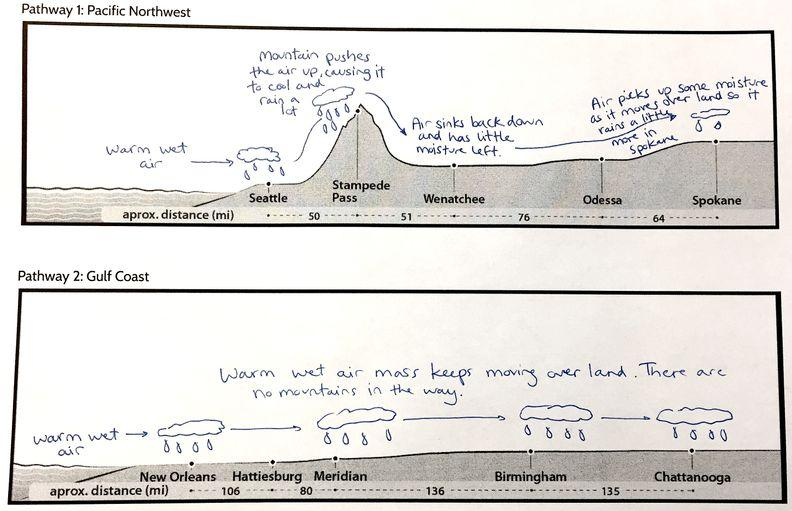 Pathway 1: Pacific Northwest
Mountain pushes
the air up, causing it
to cool and
rain a
lot
Air picks up some moisture
as it moves over land so it
rains a little
more in
Spokane
Air sinks back down
and has little
moisture left.
warm wet
air
Seattle
Stampede
Pass
Wenatchee
Odessa
Spokane
aprox. distance (mi)
50
51
76
64
Pathway 2: Gulf Coast
Warm wet air mass keeps moving over land. There are
no mountains in the way.
warm wet
air
New Orleans
Hattiesburg
Meridian
Birmingham
Chattanooga
aprox. distance (mi)
106
80
136
135